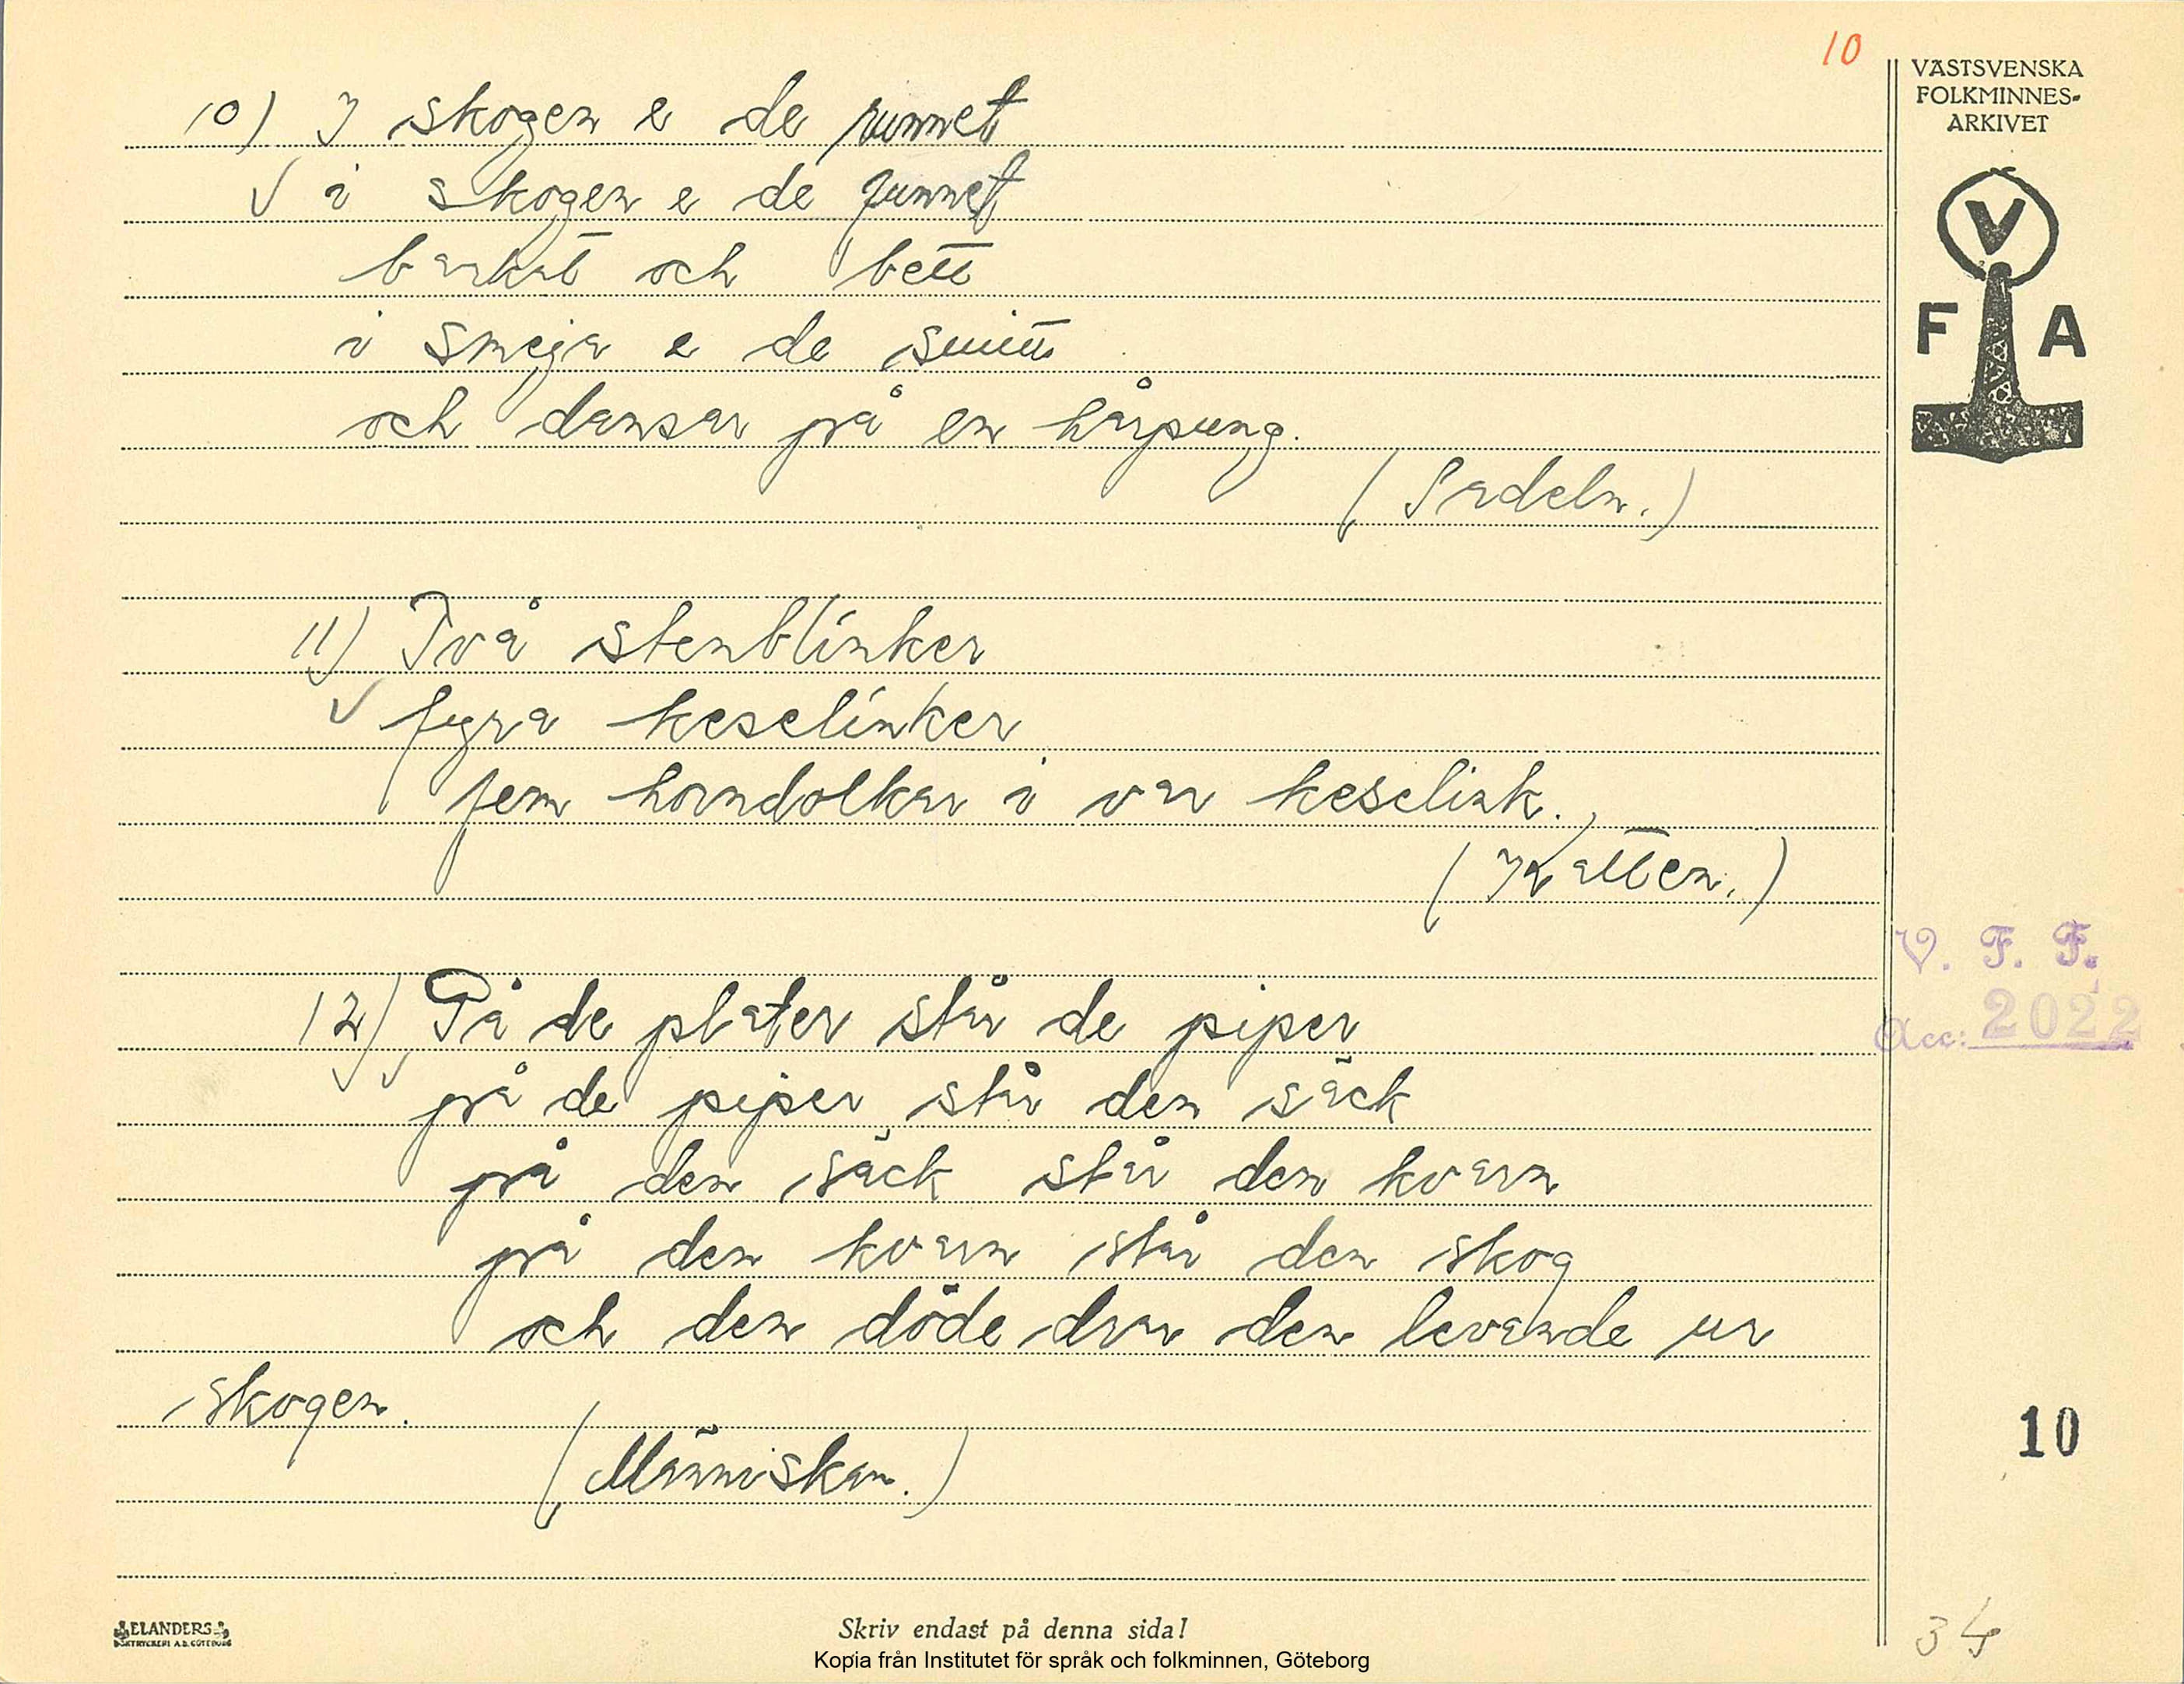 10
VÄSTSVENSKA
FOLKMINNES-
ARKIVET
V
F A
10) I skogen e de runnet
i skogen e de funnet
barkat och bett
i smeja e de
och dansar på en hårpung.
(Sadeln.)
11) Två stenblinker
fyra keselinker
fem horndolkar i var keselink.
(Katten.)
V. F. F.
Acc: 2022
12) På de plater står de piper
på de piper står den säck
på den säck står den kvarn
på den kvarn står den skog
och den döde drar den levande ur
skogen.
10
(Människan.)
ELANDERS
BOKTRYCKERI A.B. GÖTEBORG
Skriv endast på denna sida!
34
Kopia från Institutet för språk och folkminnen, Göteborg